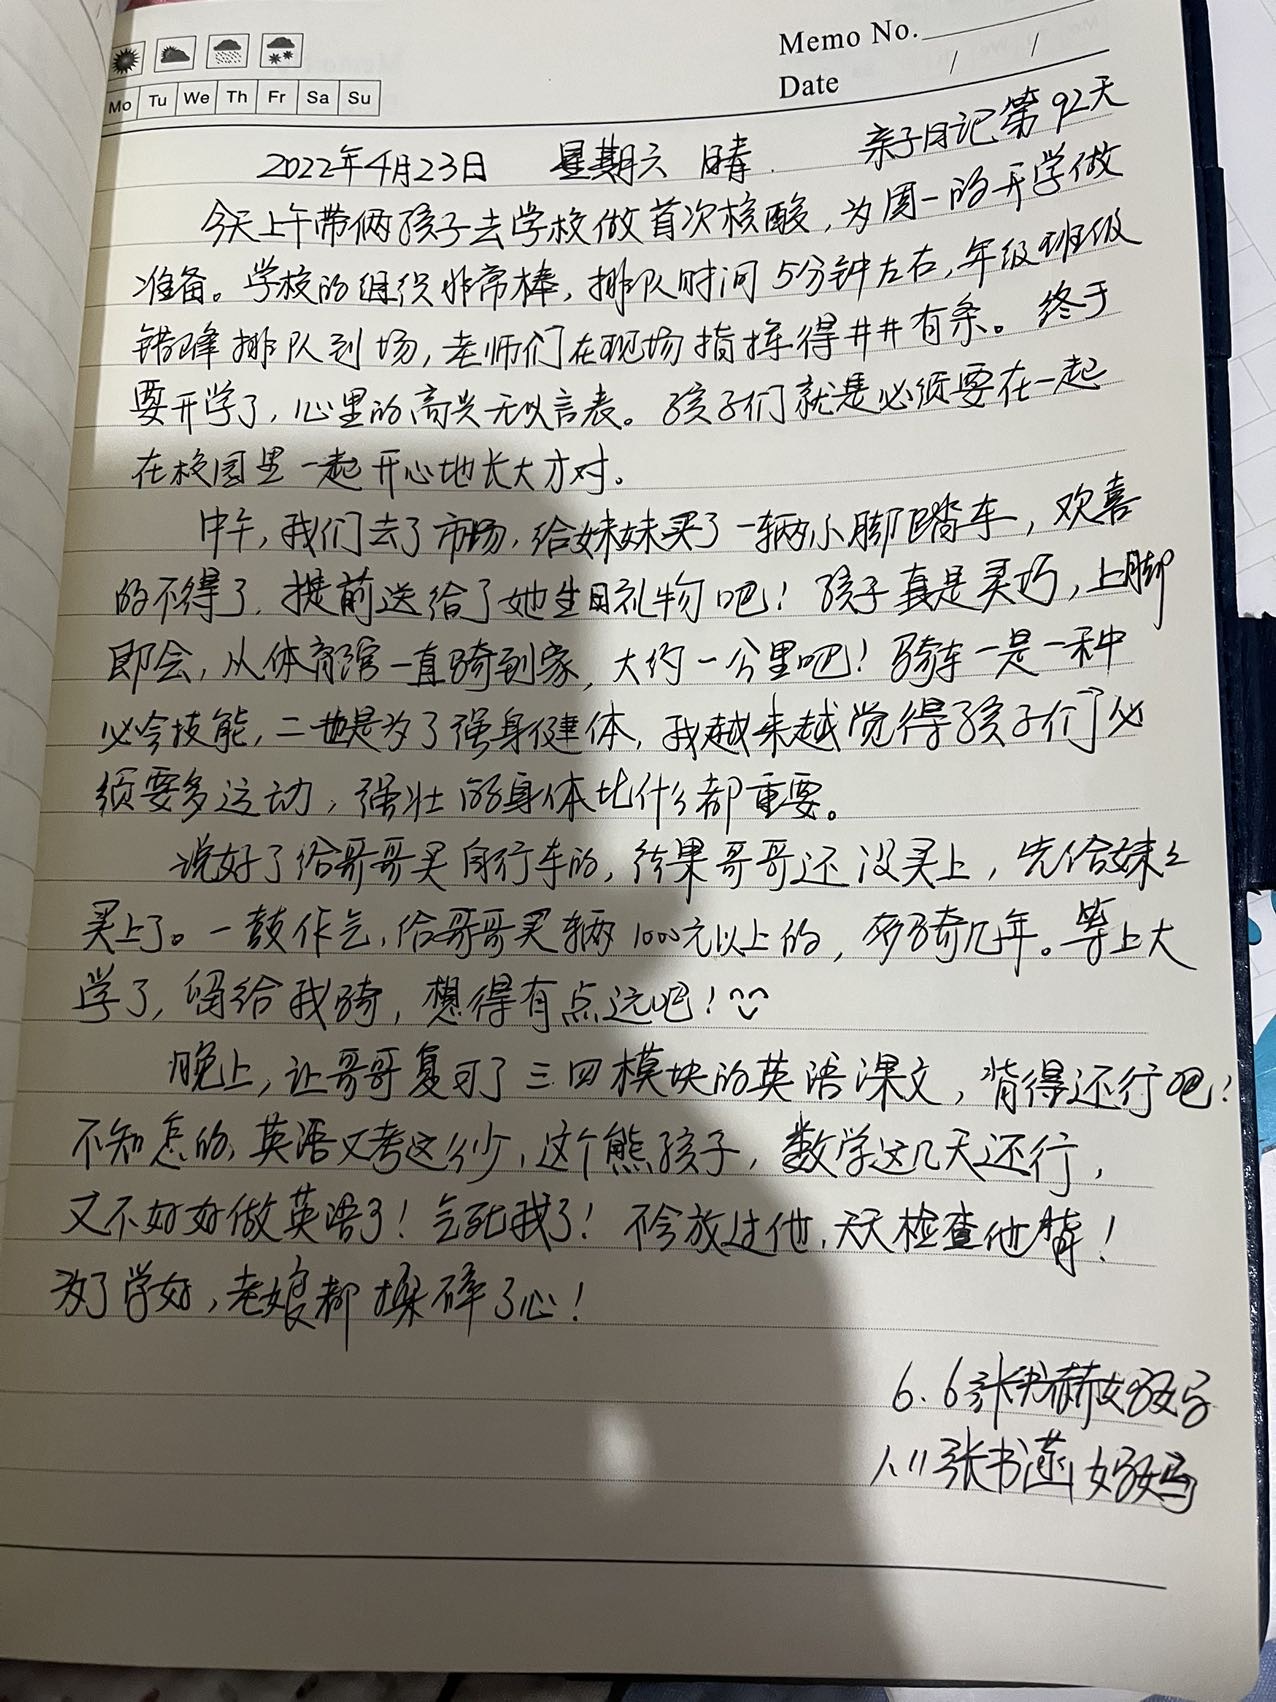 Memo No.
Mo Tu We Th Fr Sa Su
Date / /
亲子日记第92天
2022年4月23日 星期六 晴
今天上午带俩孩子去学校做首次核酸，为周一的开学做
准备。学校的组织非常棒，排队时间5分钟左右，年级班级
错峰排队到场，老师们在现场指挥得井井有条。终于
要开学了，心里的高兴无以言表。孩子们就是必须要在一起
在校园里一起开心地长大才对。
中午，我们去了市场，给妹妹买了一辆小脚踏车，欢喜
的不得了，提前送给了她生日礼物吧！孩子真是灵巧，上脚
即会，从体育馆一直骑到家，大约一公里吧！骑车一是一种
必会技能，二也是为了强身健体，我越来越觉得孩子们必
须要多运动，强壮的身体比什么都重要。
说好了给哥哥买自行车的，结果哥哥还没买上，先给妹々
买上了。一鼓作气，给哥哥买辆1000元以上的，多骑几年。等上大
学了，留给我骑，想得有点远吧！
晚上，让哥哥复习了三四模块的英语课文，背得还行吧！
不知怎的，英语又考这么少，这个熊孩子，数学这几天还行，
又不好好做英语了！气死我了！不会放过他，天天检查他背！
为了学好，老娘都操碎了心！
6.6张书赫妈妈
1.11张书涵妈妈